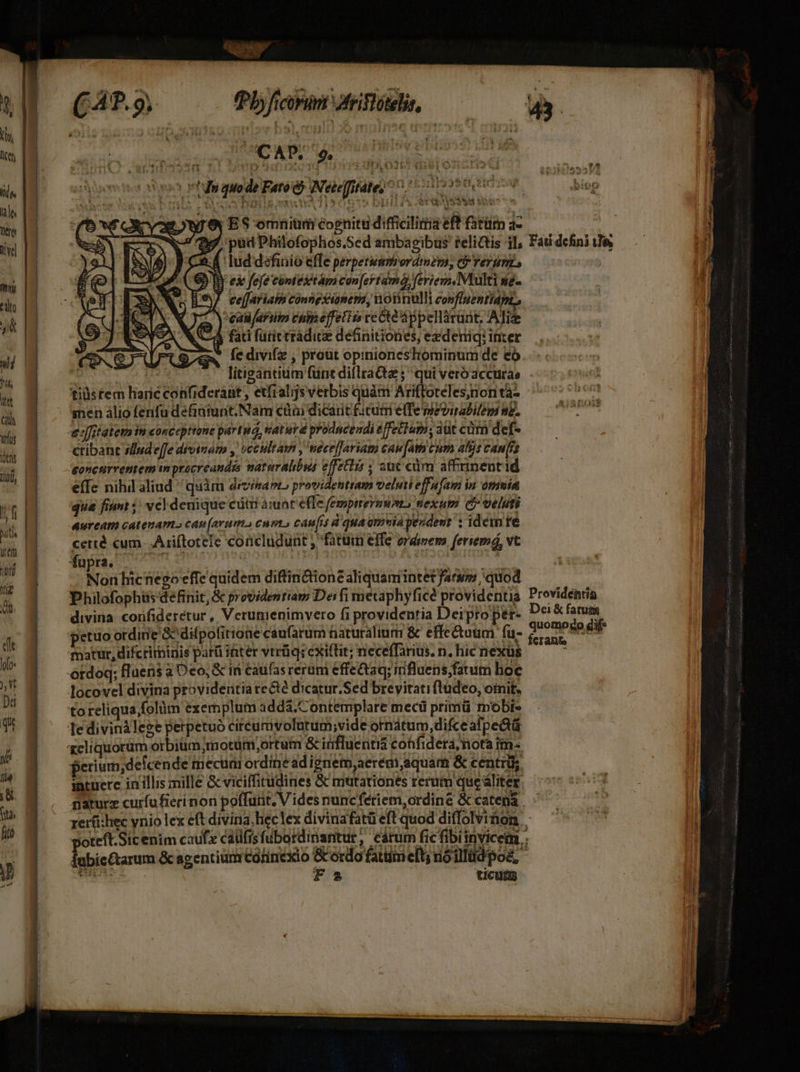 CAP.9. Phyſicorum Ariſtotelis, 43
CAP. 9.
In quo de Fato & Neceſſitate,
ES omnium cognitu difficilima eſt fatum a-
pud Philoſophos.Sed ambagibus relictis il-
lud definio eſſe perpetuum ordinem, & rerum
ex ſeſe contextam conſertamq́; ſeriem. Multi ne-
ceſſariam connexionem, nonnulli confluentiam
cauſarum cum effectis recte appellarunt. Aliæ
fati ſunt traditæ definitiones, eædemq; inter
ſe diviſæ , prout opiniones hominum de eo
litigantium ſunt diſtractæ ; qui vero accura-
tius rem hanc conſiderant , etſi alijs verbis quàm Ariſtoteles,non ta-
men alio ſenſu definiunt.Nam cùm dicant fatum eſſe inevitabilem ne-
ceſſitatem in conceptione partuq́, natura producendi effectum; aut cùm deſ-
cribant illud eſſe divinam , occultam , neceſſariam cauſam cum alijs cauſis
concurrentem in procreandis naturalibus effectis ; aut cùm affirment id
eſſe nihil aliud quàm divinam providentiam veluti effuſam in omnia
quæ fiunt ; vel denique cùm aiunt eſſe ſempiternum nexum & veluti
auream catenam cauſarum cum cauſis à qua omnia pendent : idem re
certè cum Ariſtotele concludunt , fatum eſſe ordinem ſeriemq́, vt
ſupra.
Non hic nego eſſe quidem diſtinctionē aliquam inter fatum , quod
Philoſophus definit, & providentiam Dei ſi metaphyſicè providentia
divina conſideretur , Verumenimvero ſi providentia Dei pro per-
petuo ordine & diſpoſitione cauſarum naturalium & effectuum ſu-
matur, diſcriminis parū inter vtrūq; exiſtit; neceſſarius. n. hic nexus
ordoq; fluens à Deo, & in cauſas rerum effectaq; influens,fatum hoc
loco vel divina providentia rectè dicatur.Sed brevitati ſtudeo, omit-
to reliqua,ſolùm exemplum addā.Contemplare mecū primū mobi-
le divinà lege perpetuò circumvolutum;vide ornatum,diſce aſpectū
reliquorum orbium,motum,ortum & influentiā conſidera, nota im-
perium;deſcende mecum ordine ad ignem,aërem,aquam & centrū;
intuere in illis mille & viciſſitudines & mutationes rerum quę aliter
naturæ curſu fieri non poſſunt. Vides nunc ſeriem,ordinē & catenā
rerū:hęc vnio lex eſt divina.hęc lex divina fatū eſt quod diſſolvi non
poteſt.Sic enim cauſæ cauſis ſubordinantur , earum ſic ſibi invicem
ſubiectarum & agentium connexio & ordo fatum eſt; nō illud poë-
F 2 ticum
Fati definitio
Providentia
Dei & fatum
quomodo dif-
ferant.